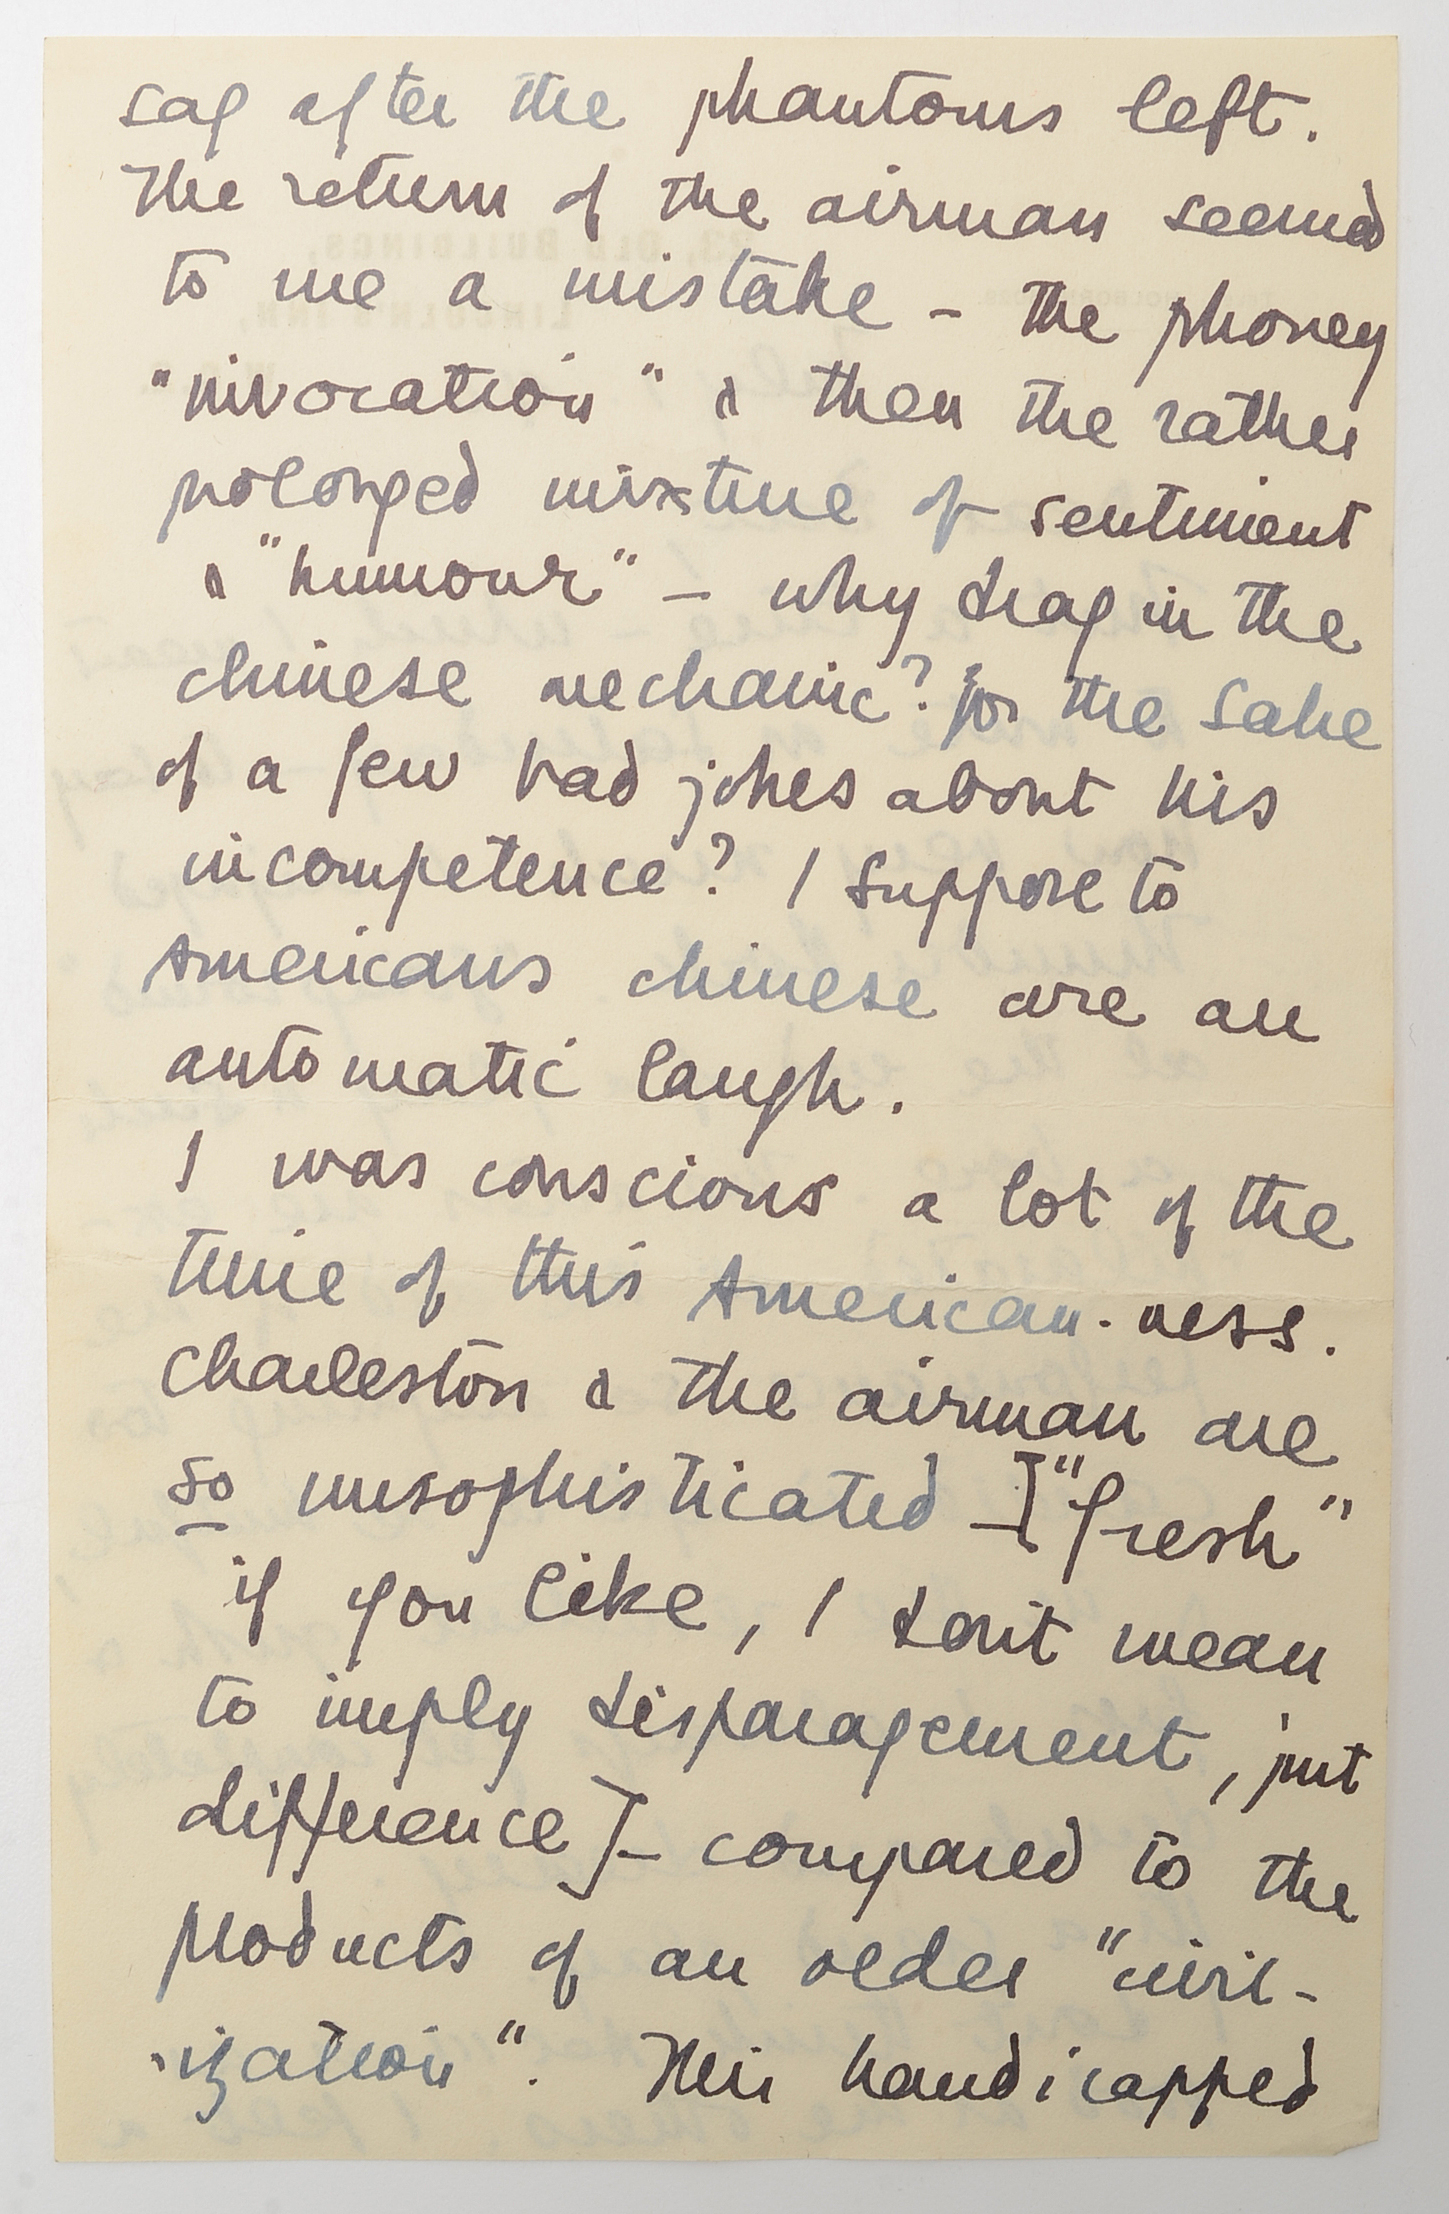 sag after the phantoms left.
The return of the airman seemed
to me a mistake – the phoney
"invocation" & then the rather
prolonged mixture of sentiment
& "humour" – why drag in the
chinese mechanic? for the sake
of a few bad jokes about his
incompetence? I suppose to
Americans chinese are an
automatic laugh.
I was conscious a lot of the
time of this American-ness.
Charleston & the airman are
so unsophisticated – ["fresh"
if you like, I don't mean
to imply disparagement, just
difference] – compared to the
products of an older "civil-
-ization". This handicapped